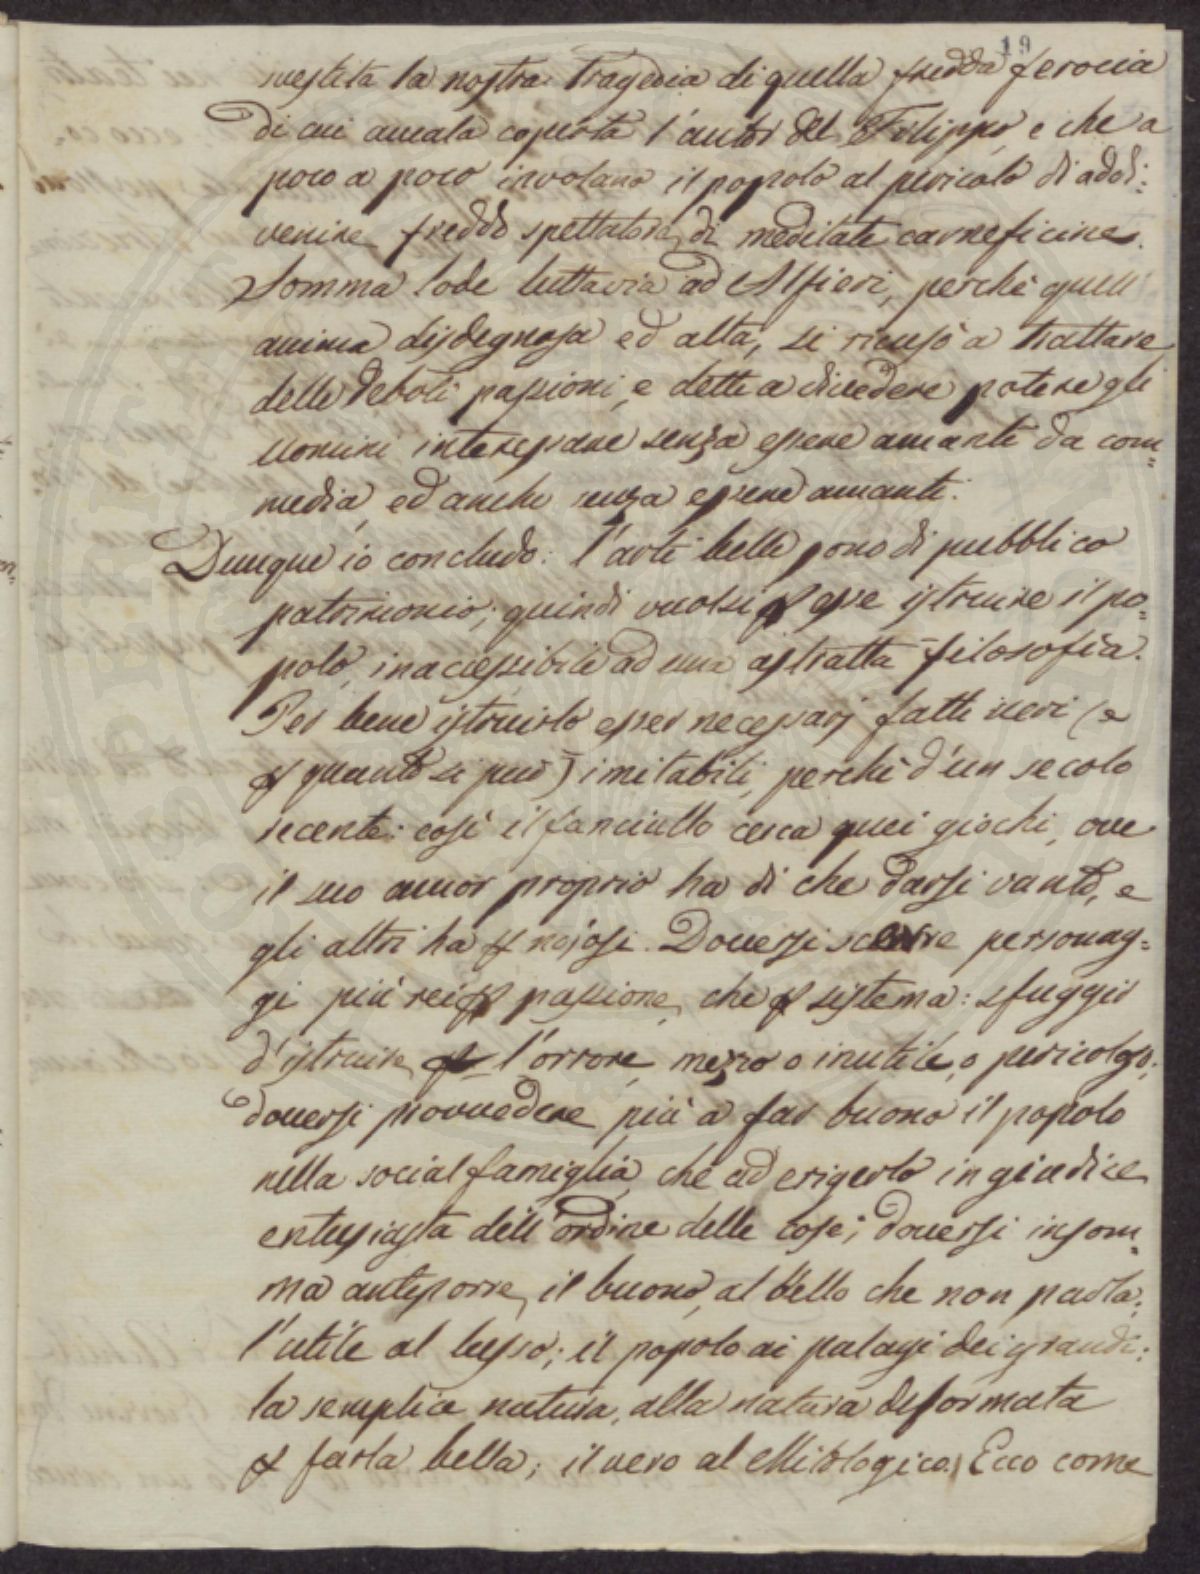 19
vestita la nostra tragedia di quella fredda ferocia
di cui aveala coperta l'autor del Filippo, e che a
poco a poco involano il popolo al pericolo di addi:
venire freddo spettatore di meditate carneficine.
Somma lode tuttavia ad Alfieri, perchè quell'
anima disdegnosa ed alta, si ricusò a trattare
delle deboli passioni, e dette a divedere potere gli
uomini interessare senza essere amanti da com=
media, ed anche senza essere amanti.
Dunque io concludo: l'arti belle sono di pubblico
patrimonio; quindi vuolsi p esse istruire il po=
polo, inaccessibile ad una astratta filosofia.
Per bene istruirlo esser necessarj fatti veri (e
p quanto si può) imitabili, perchè d'un secolo
recente: così il fanciullo cerca quei giochi, ove
il suo amor proprio ha di che darsi vanto, e
gli altri ha p nojosi. Doversi scerre personag=
gi più rei p passione, che p sistema: sfuggir
d'istruire p l'orrore, mezzo o inutile, o pericoloso;
doversi provvedere più a far buono il popolo
nella social famiglia, che ad erigerlo in giudice
entusiasta dell'ordine delle cose; doversi insom=
ma anteporre, il buono, al bello che non parla;
l'utile al lusso; il popolo ai palagi dei grandi;
la semplice natura, alla natura deformata
p farla bella; il vero al Mitologico. Ecco come